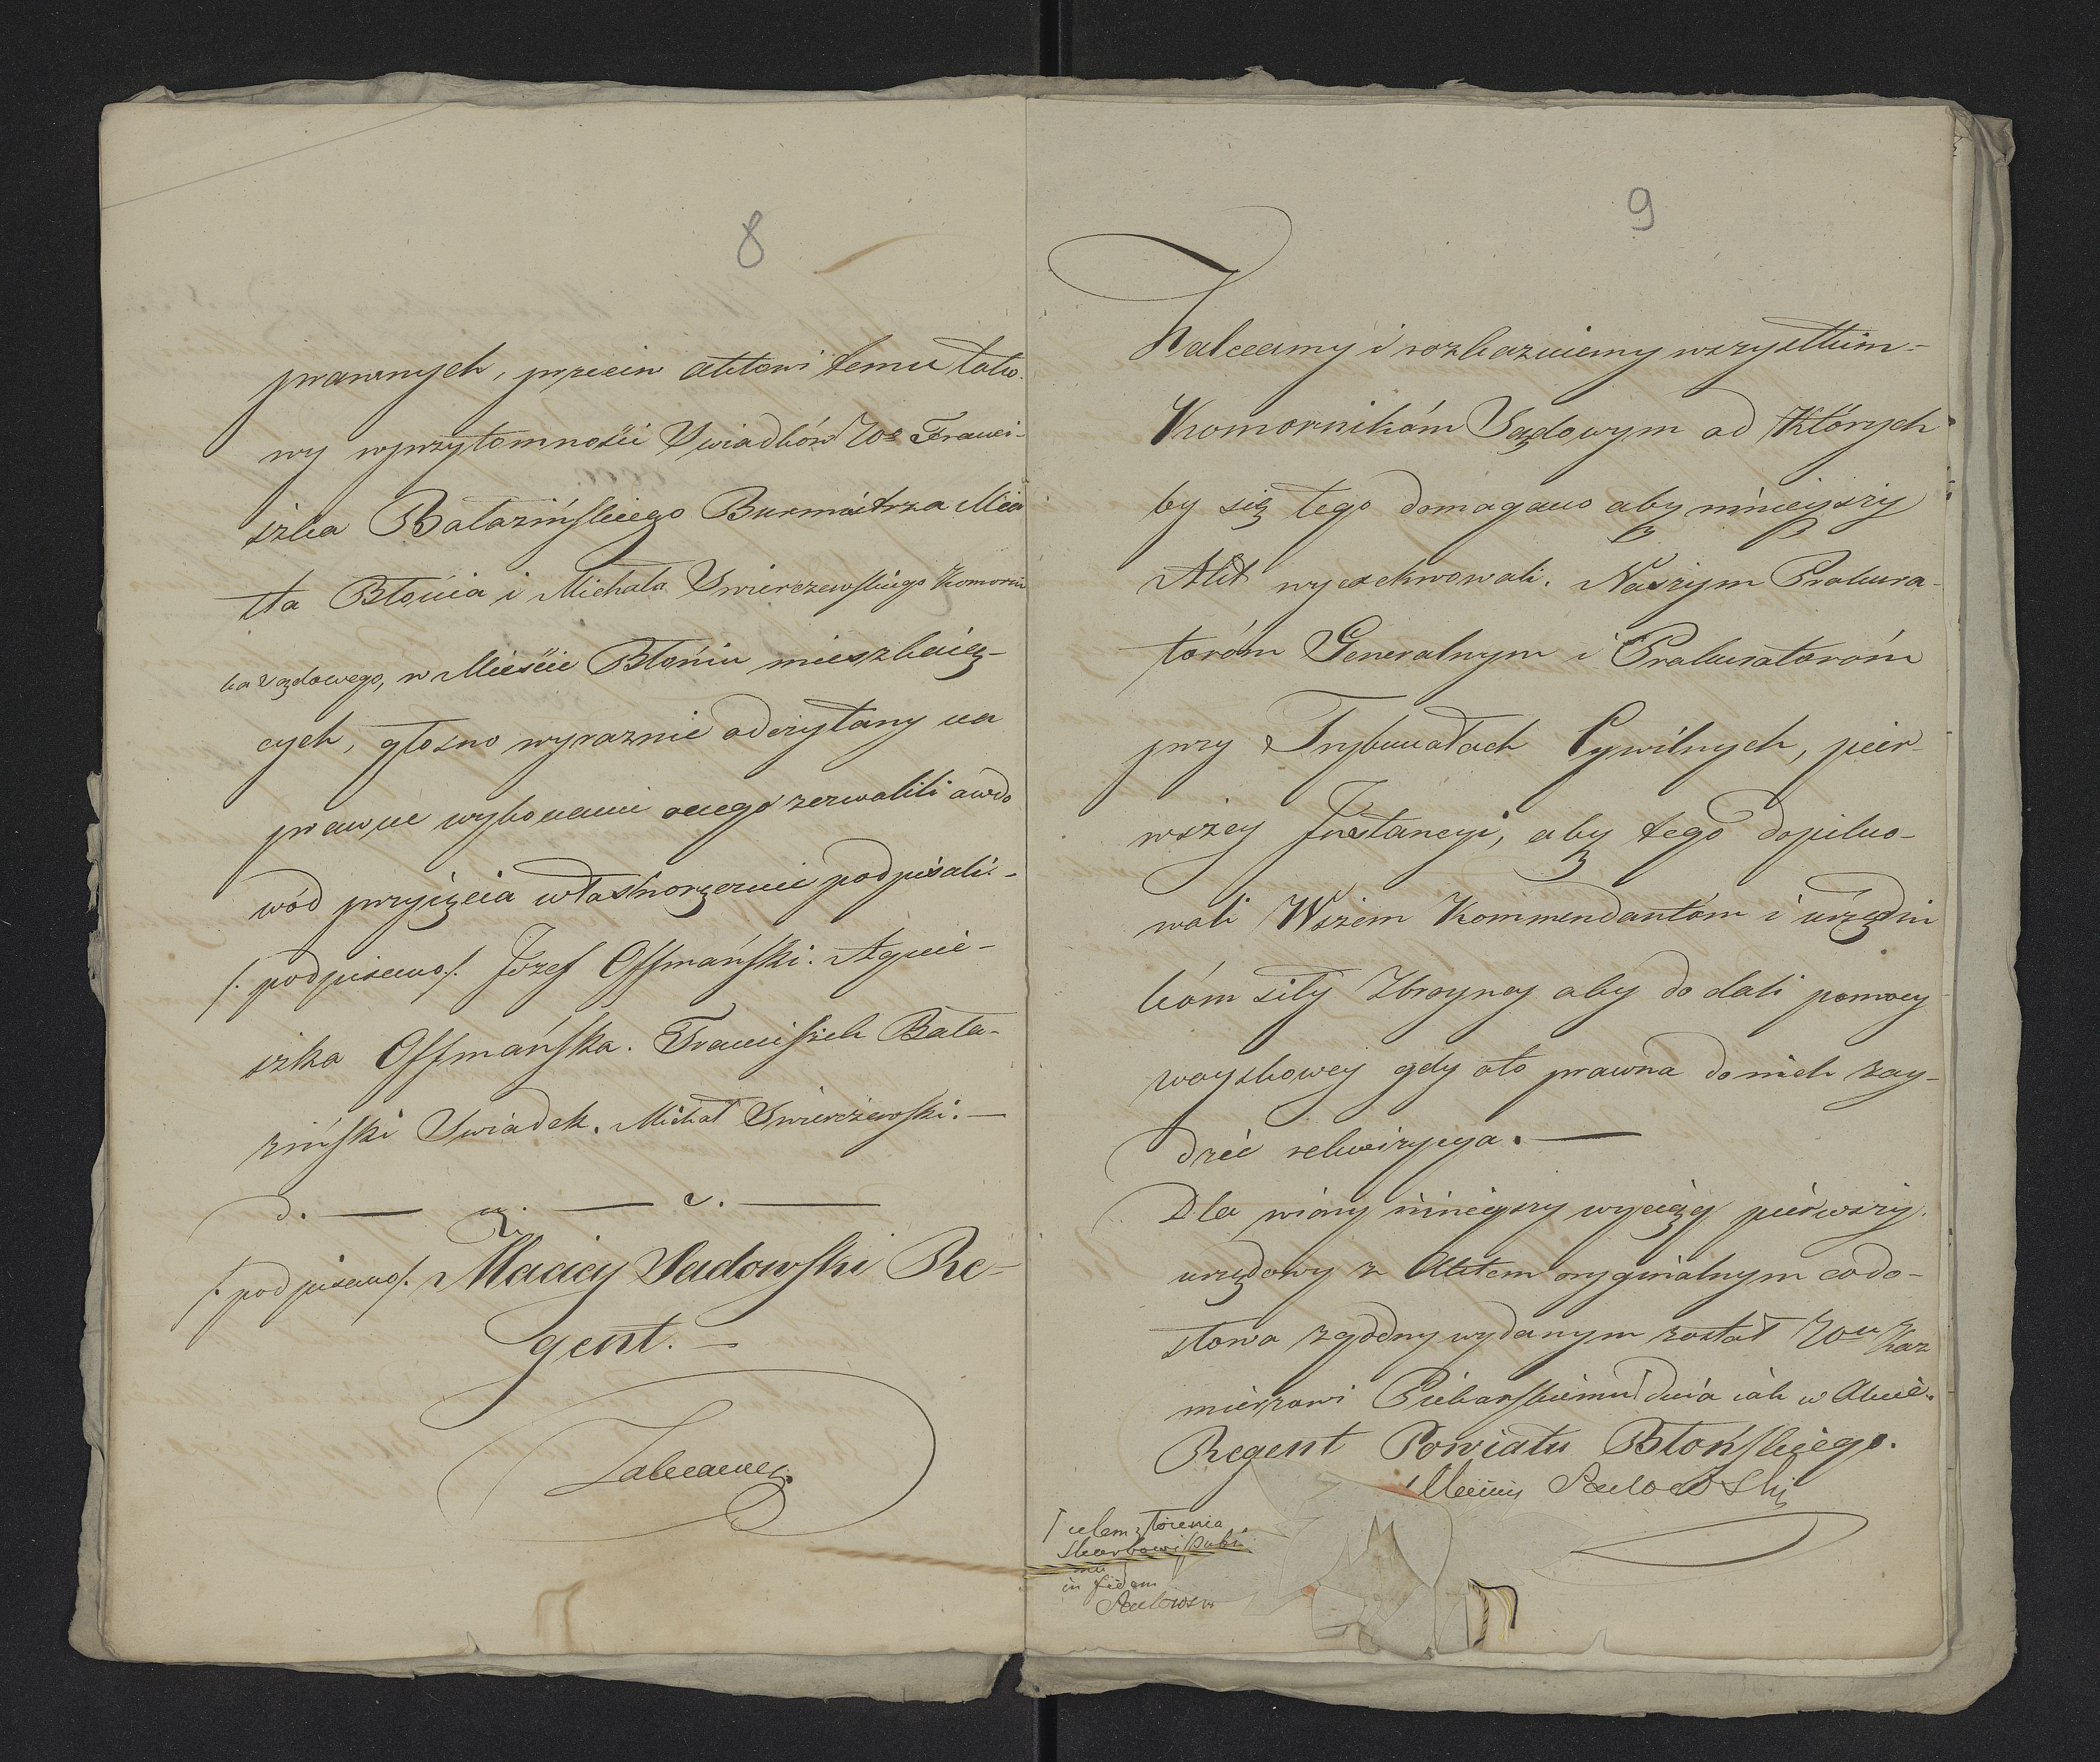 8
prawnych, przeciw Aktowi temu tako-
wy wprzytomności Swiadków Wo Franci-
szka Batazińskiego Burmistrza Mia
sta Błonia i Michała Swierczewskiego Komorni
ka Sądowego, w Mieście Błoniu mieszkaią-
cych, głosno wyraznie odczytany na
prawne wykonanie onego zezwolili a w do
wód przyięcia własnoręcznie podpisali.-
/: podpisano/: Józef Offmański. Agnie-
szka Offmańska. Franciszek Bata-
ziński Swiadek. Michał Swierczewski.-
/: podpisano/: Maciey Sadowski Re-
gent.-
Zalecamy.
9
Zalecamy i rozkazuiemy wszystkim-
Komornikóm Sądowym od Których
by się tego domagano aby ninieyszy
Akt wyexekwowali. Naszym Prokura-
toróm Generalnym i Prokuratoróm
przy Trybunałach Cywilnych, pier-
wszey Instancyi, aby tego dopilno-
wali Wszem Kommendantóm i urzędni
kóm siły Zbroyney aby do dali pomocy
woyskowey gdy oto prawna do nich zay-
dzie rekwizycya.-
Dla wiary ninieyszy wyciąg pierwszy
urzędowy z Aktem oryginalnym co do-
słowa zgodny wydanym został Wmu Kaz
mierzowi Piekarskiemu dnia iak w Akcie.
Regent Powiatu Błońskiego.
Maciey Sadowski
celem złożenia
Skarbowi Publi
mu
in fidem
Sadowski